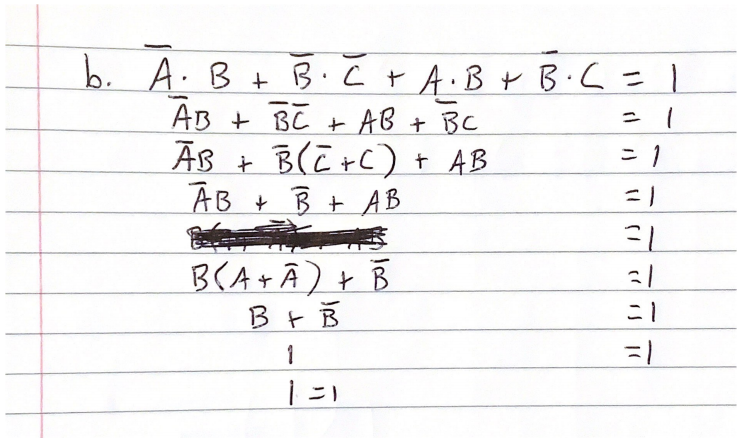 b. A̅ · B + B̅ · C̅ + A · B + B̅ · C = 1
A̅B + B̅C̅ + AB + B̅C = 1
A̅B + B̅(C̅ + C) + AB = 1
A̅B + B̅ + AB = 1
=1
B(A + A̅) + B̅ =1
B + B̅ =1
1 =1
1 =1